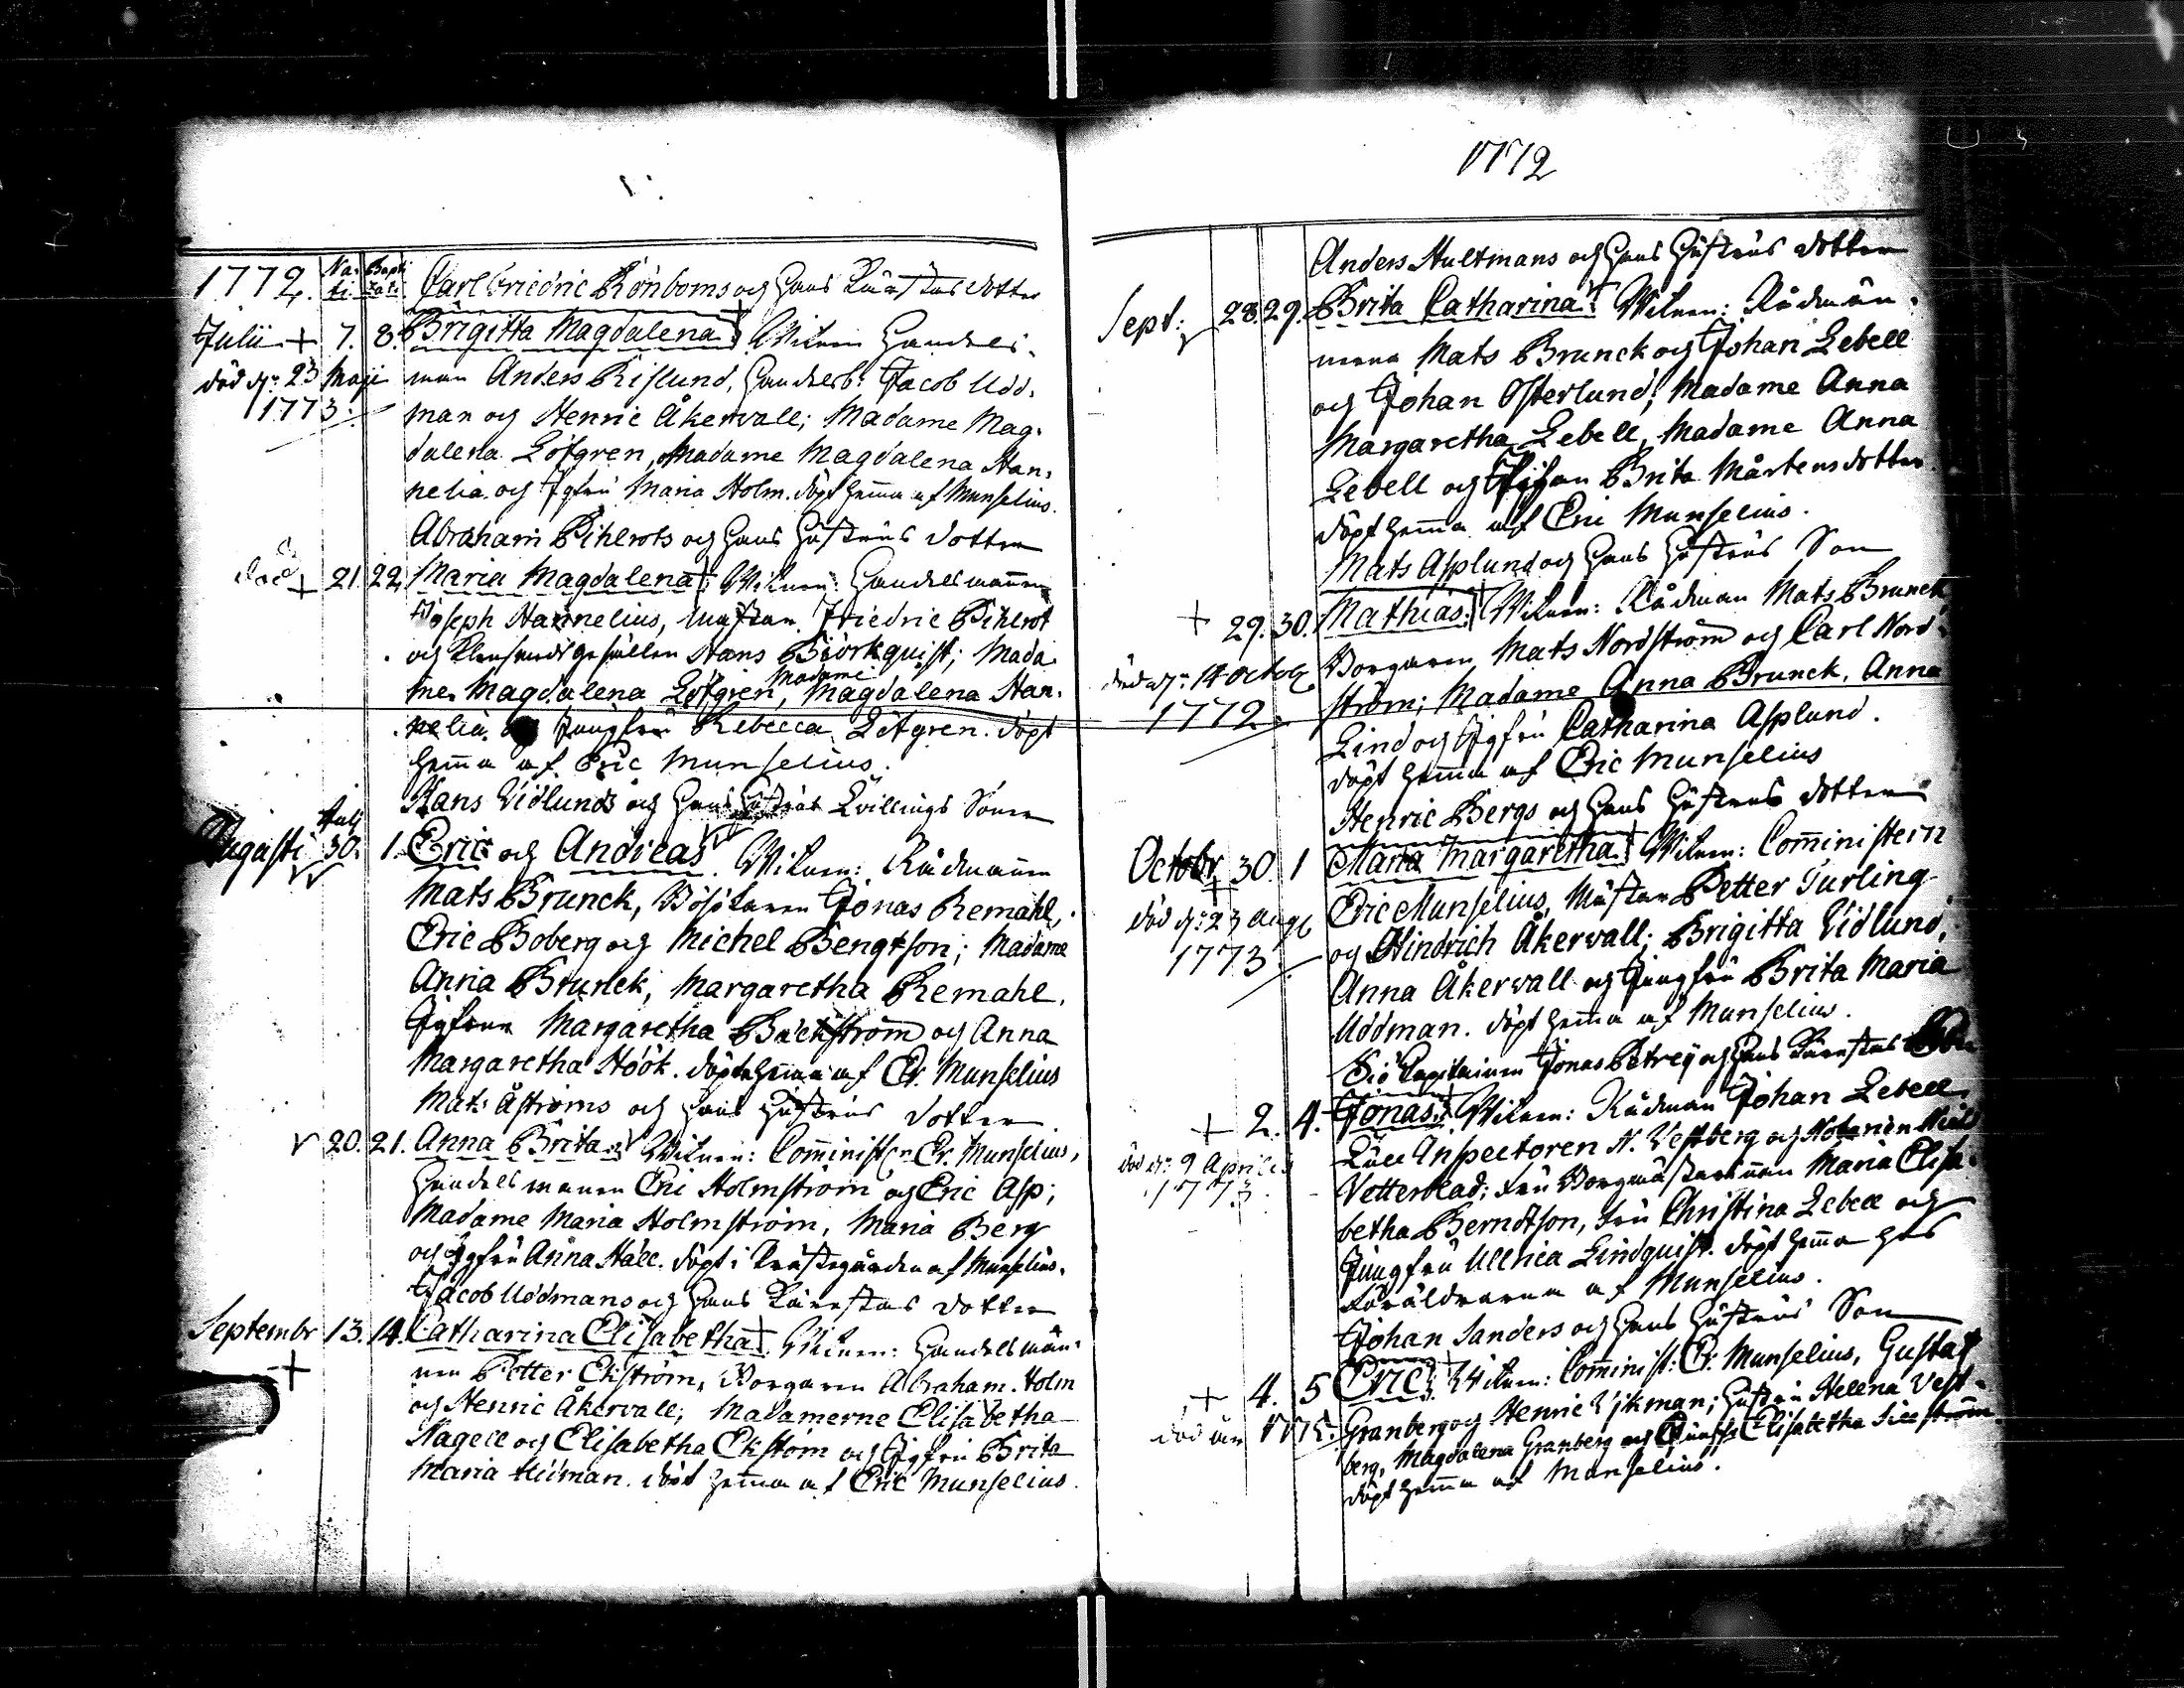 1772
1772. Na- Bapti
ti. zati. Carl Friedric Rönboms och hans Kärestas dotter
Julii + 7. 8. Brigitta Magdalena. Vitnen Handels-
död d: 23 Maji man Anders Rislund, Handelsb: Jacob Udd-
1773. man och Henric Åkervall; Madame Mag-
dalena Löfgren, Madame Magdalena Han-
nelia och Jgfru Maria Holm. döpt hemma af Munselius.
Abraham Pihlrots och hans hustrus dotter
död + 21. 22. Maria Magdalena. Vitnen: Handelsmannen
Joseph Hannelius, Mästar Friedric Pihlrot
och gesällen Hans Biörkquist; Mada-
me Magdalena Löfgren, Madame Magdalena Han-
nelia och Jungfru Rebecca Löfgren. döpt
hemma af Eric Munselius.
Hans Vidlunds och hans hustrus Tvillings Söner
Augusti Julij 30. 1. Eric och Andreas. Vitnen: Rådmannen
Mats Brunck, Jonas Remahl,
Eric Boberg och Michel Bengtson; Madame
Anna Brunck, Margaretha Remahl,
Jgfrur Margaretha Bäckström och Anna
Margaretha Höök. döpte hemma af Er. Munselius
Mats Åströms och hans hustrus dotter
20. 21. Anna Brita. Vitnen: Comministern Er. Munselius,
Handelsmannen Eric Holmström och Eric Asp;
Madame Maria Holmström, Maria Berg
och Jgfru Anna Häll. döpt i Prästegården af Munselius.
Jacob Uddmans och hans Kärestas dotter
Septembr 13. 14. Catharina Elisabetha. Vitnen: Handelsmän-
+ nen Petter Ekström, Borgaren Abraham Holm
och Henric Åkervall; Madamerne Elisabetha
Nagell och Elisabetha Ekström och Jgfru Brita
Maria Hidman. döpt hemma af Eric Munselius.
Anders Hultmans och hans hustrus dotter
Sept: 28. 29. Brita Catharina. Vitnen: Rådmän-
nerna Mats Brunck och Johan Lebell
och Johan Österlund; Madame Anna
Margaretha Lebell, Madame Anna
Lebell och Pigan Brita Mårtensdotter.
döpt hemma af Eric Munselius.
Mats Asplund och hans hustrus Son
+ 29. 30. Mathias. Vitnen: Rådman Mats Brunck,
död d: 14 Octob. Borgaren Mats Nordström och Carl Nord-
1772. ström; Madame Anna Brunck, Anna
Lind och Jgfru Catharina Asplund.
döpt hemma af Eric Munselius
Henric Bergs och hans hustrus dotter
Octobr 30. 1 Maria Margaretha. Vitnen: Comministern
+ död d: 23 Aug. Eric Munselius, Mästar Petter Turling
1773. och Hindrich Åkervall; Brigitta Vidlund,
Anna Åkervall och Jungfru Brita Maria
Uddman. döpt hemma af Munselius.
Siö Capitainen Jonas Petrej och hans Kärestas Son
+ 2. 4. Jonas. Vitnen: Rådman Johan Lebell,
död d: 9 Aprilis Tull Inspectoren N. Vestberg och Notarien
1773. Vetterblad; Fru Borgmästarinnan Maria Elisa-
betha Berndtson, Fru Christina Lebell och
Jungfru Ullrica Lindquist. döpt hemma hos
Föräldrarna af Munselius.
Johan Sanders och hans hustrus Son
+ 4. 5 Eric. Vitnen: Comminist: Er. Munselius, Gustaf
död år 1775. Granberg och Henric Vikman; hustru Helena Vest-
berg, Magdalena Granberg och Elisabetha
döpt hemma af Munselius.